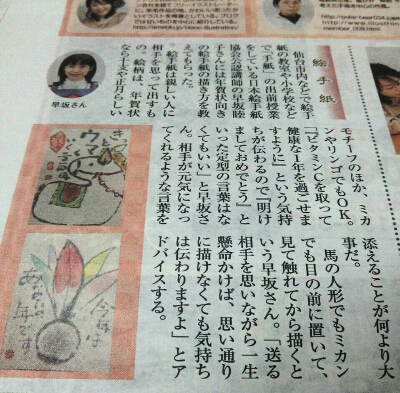 絵手紙
仙台市内などで絵手
紙の教室や小学校など
で「手紙」の出前授業
をしている日本絵手紙
協会公認講師の早坂睦
子さんには年賀状向き
の絵手紙の描き方を教
えてもらった。
絵手紙は親しい人に
相手を思って出すも
の。絵柄は、年賀状
なら十支や正月らしい
モチーフのほか、ミカ
ンやリンゴでもOK。
「ビタミンCを取って
健康な1年を過ごせま
すように」という気持
ちが伝わるので「明け
ましておめでとう」と
いった定型の言葉はな
くてもいい」と早坂さ
ん。相手が元気になっ
てくれるような言葉を
添えることが何より大
事だ。
馬の人形でもミカン
でも目の前に置いて、
見て触れてから描くと
いう早坂さん。「送る
相手を思いながら一生
懸命かけば、思い通り
に描けなくても気持ち
は伝わりますよ」とア
ドバイスする。
早坂さん
きっと
ウマ
くいく
今年は
年です